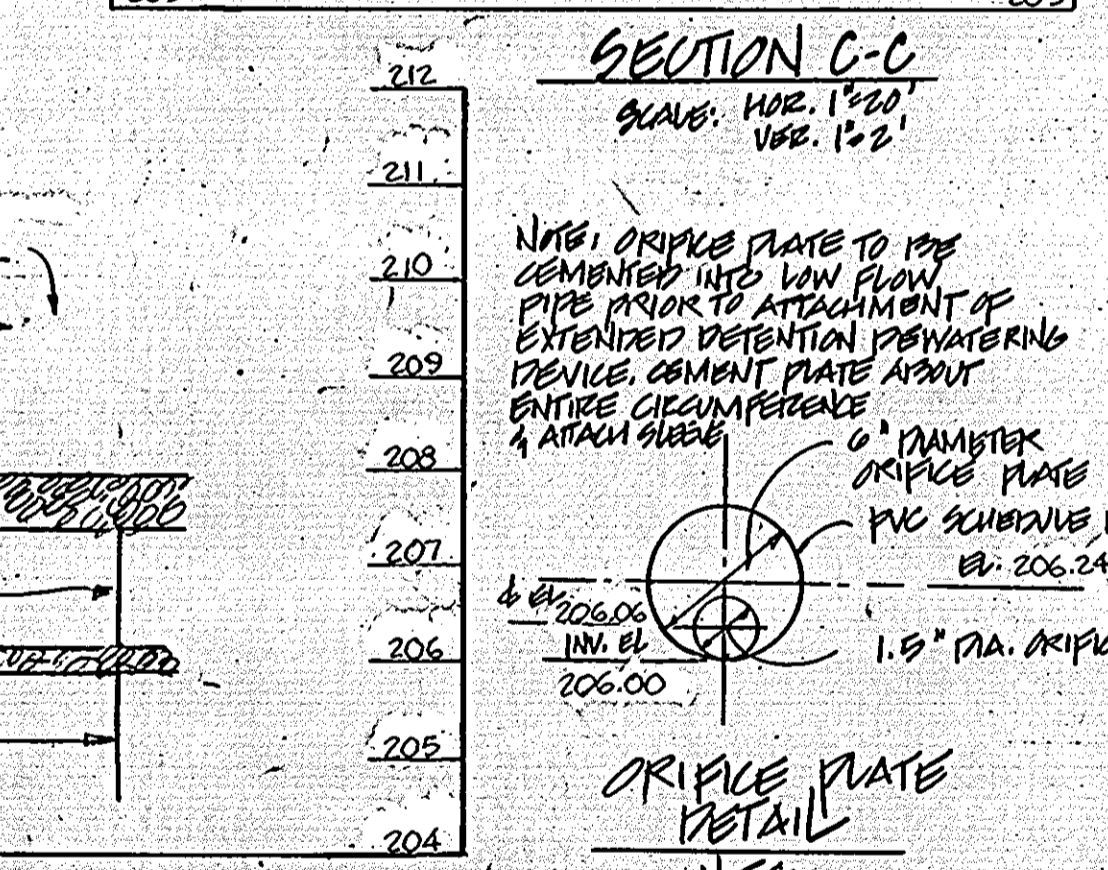 SECTION C-C
SCALE: HOR. 1"=20'
VER. 1"=2'
212
211
210
209
208
207
206
205
204
NOTE: ORIFICE PLATE TO BE
CEMENTED INTO LOW FLOW
PIPE PRIOR TO ATTACHMENT OF
EXTENDED DETENTION DEWATERING
DEVICE. CEMENT PLATE ABOUT
ENTIRE CIRCUMFERENCE
& ATTACH SLEEVE
6" DIAMETER
ORIFICE PLATE
PVC SCHEDULE
EL: 206.24
℄ EL 206.06
INV. EL
206.00
1.5" DIA. ORIFIC
ORIFICE PLATE
DETAIL